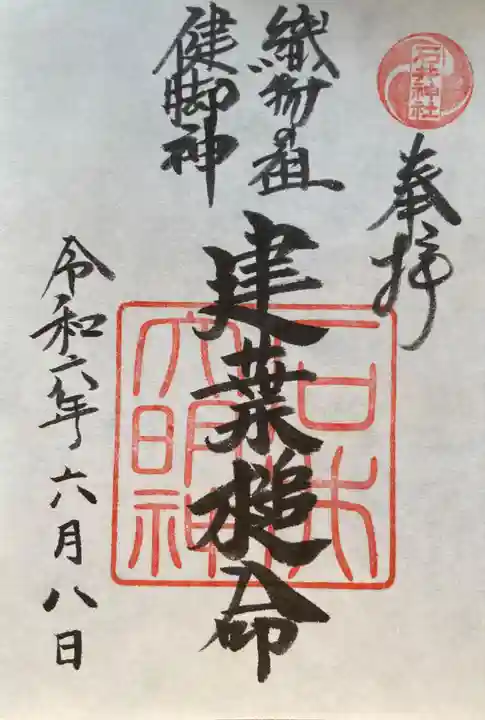 石井神社
奉拝
織物の祖
健脚神
建葉槌命
石井
大明神
令和六年六月八日